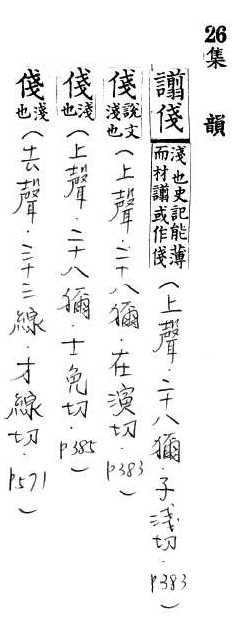 26 集 韻
譾俴 淺也史記能薄而材譾或作俴（上聲．二十八獮．子淺切．p383）
俴 說文淺也（上聲．二十八獮．在演切．p383）
俴 淺也（上聲．二十八獮．士免切．p385）
俴 淺也（去聲．三十三線．才線切．p571）